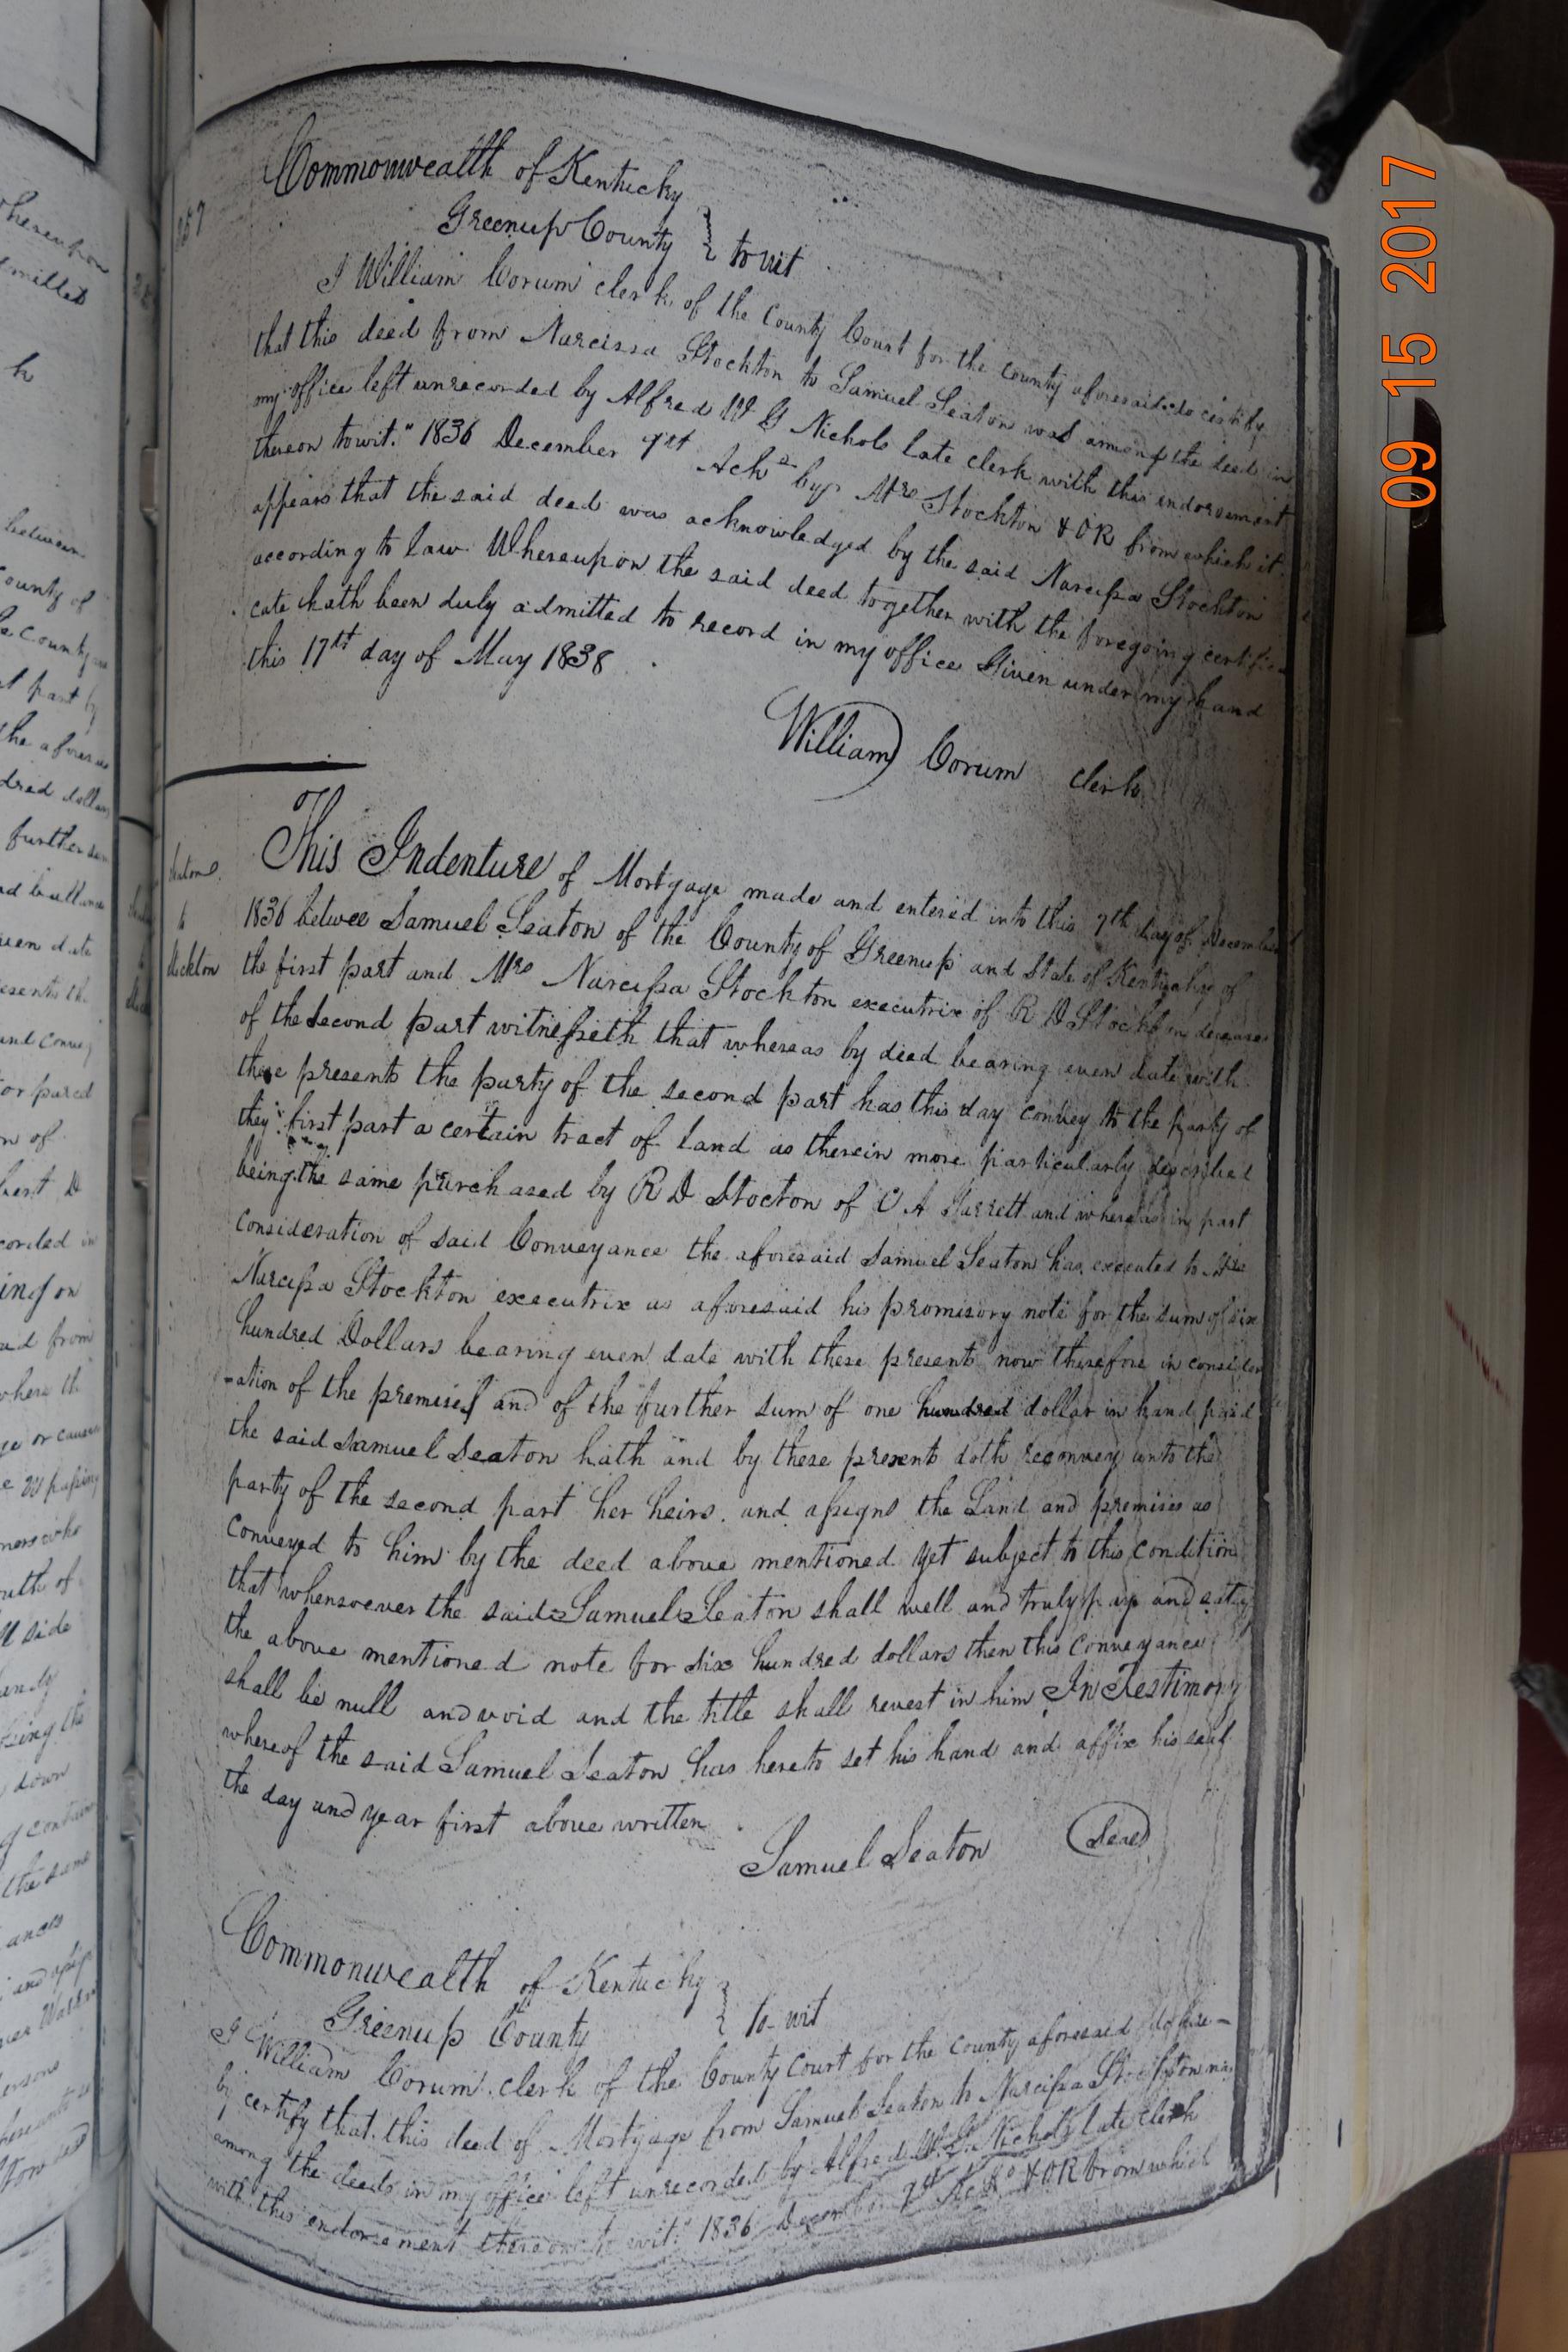 Commonwealth of Kentucky
Greenup County } to wit
I William Corum clerk of the County Court for the county aforesaid do certify
that this deed from Narcissa Stockton to Samuel Seaton was among the deed in
my office left unrecorded by Alfred W G Nichols late clerk with this endorsement
thereon to wit. " 1836 December 7th Ackd by Mrs Stockton & OR from which it
appears that the said deed was acknowledged by the said Narcissa Stockton
according to law Whereupon the said deed together with the foregoing certifi-
cate hath been duly admitted to record in my office Given under my hand
this 17th day of May 1838
William Corum clerk
Seaton
to
Stockton
This Indenture of Mortgage made and entered into this 7th day of December
1836 betwee Samuel Seaton of the County of Greenup and State of Kentucky of
the first part and Mrs Narcissa Stockton executrix of R D Stockton deceased
of the Second part witnesseth that whereas by deed bearing even date with
these presents the party of the second part has this day convey to the party of
they first part a certain tract of land as therein more particularly described
being the same purchased by R D Stocton of A Garrett and whereas in part
consideration of said Conveyance the aforesaid Samuel Seaton has executed to Mrs
Narcissa Stockton executrix as aforesaid his promisory note for the sum of six
hundred Dollars bearing even date with these present now therefore in consider
-ation of the premises and of the further sum of one hundred dollar in hand paid
the said Samuel Seaton hath and by these presents doth reconvey unto the
party of the second part her heirs and assigns the Land and premises as
conveyed to him by the deed above mentioned yet subject to this condition
that whensoever the said Samuel Seaton shall well and truly pay and satisfy
the above mentioned note for six hundred dollars then this conveyance
shall be null and void and the title shall revest in him In Testimony
whereof the said Samuel Seaton has hereto set his hand and affix his seal
the day and year first above written
Samuel Seaton (Seal)
Commonwealth of Kentucky
Greenup County } to wit
I William Corum clerk of the County Court for the County aforesaid do here-
by certify that this deed of Mortgage from Samuel Seaton to Narcissa Stockton was
among the deeds in my office left unrecorded by Alfred W. G. Nichols late clerk
with this endorsement thereon to wit: " 1836 December 7th Ackd & OR from which
09 15 2017